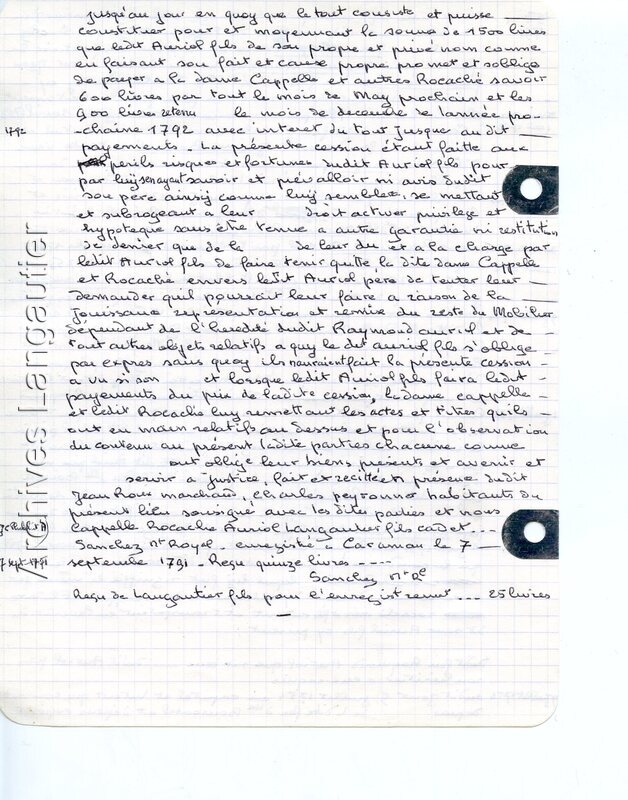 jusqu'au jour en quoy que le tout consiste et puisse
constituer pour et moyennant la somme de 1500 livres
que ledit Auriol fils de son propre et privé nom comme
en faisant son fait et cause propre promet et soblige
de payer a la dame Cappelle et autres Rocaché savoir
600 livres par tout le mois de May prochain et les
900 livres le mois de decembre de lannée pro-
1792
-chaine 1792 avec interet du tout jusque au dit
payements. La présente cession étant faitte aux
perils risques et fortunes dudit Auriol fils pour
par luy sen ayent savoir et prévalloir ni avis dudit
son pere ainsy comme luy semblera, se mettant
et subrogeant a leur droit activer privilege et
hypoteque sans être tenue a autre garantie ni restitution
de denirer que de la de leur du et a la charge par
ledit Auriol fils de faire tenir quitte la dite dame Cappelle
et Rocaché envers ledit Auriol père de toutes leur
demander quil pourrait leur faire a raison de la
jouissance representation et remise du reste du Mobilier
dépendant de l'heredité dudit Raymond auriol et de
tout autres objets relatifs a quy le dit auriol fils s'oblige
par expres sans quoy ils nauraient fait la présente cession
a vu si son et lorsque ledit Auriol fils faira ledit
payements du prix de ladite cession, la dame cappelle
et ledit Rocaché luy remettant les actes et titres quils
ont en main relatifs au dessus et pour l'observation
du contenu au présent ladite parties chacune comme
ont obligé leur biens présents et avenir et
servir a justice, fait et recitté en présence dudit
Jean Roux marchand, charles peyronner habitants du
présent lieu sousigné avec les dites parties et nous
Cappelle Rocache Auriol Langautier fils cadet ...
Sanchez Nre Royal - enregistré a Caraman le 7
7 sept 1791
septembre 1791 - Reçu quinze livres ----
Sanchez Nre Rl
Reçu de Langautier fils pour l'enregistrement ... 25 livres
Archives Langautier